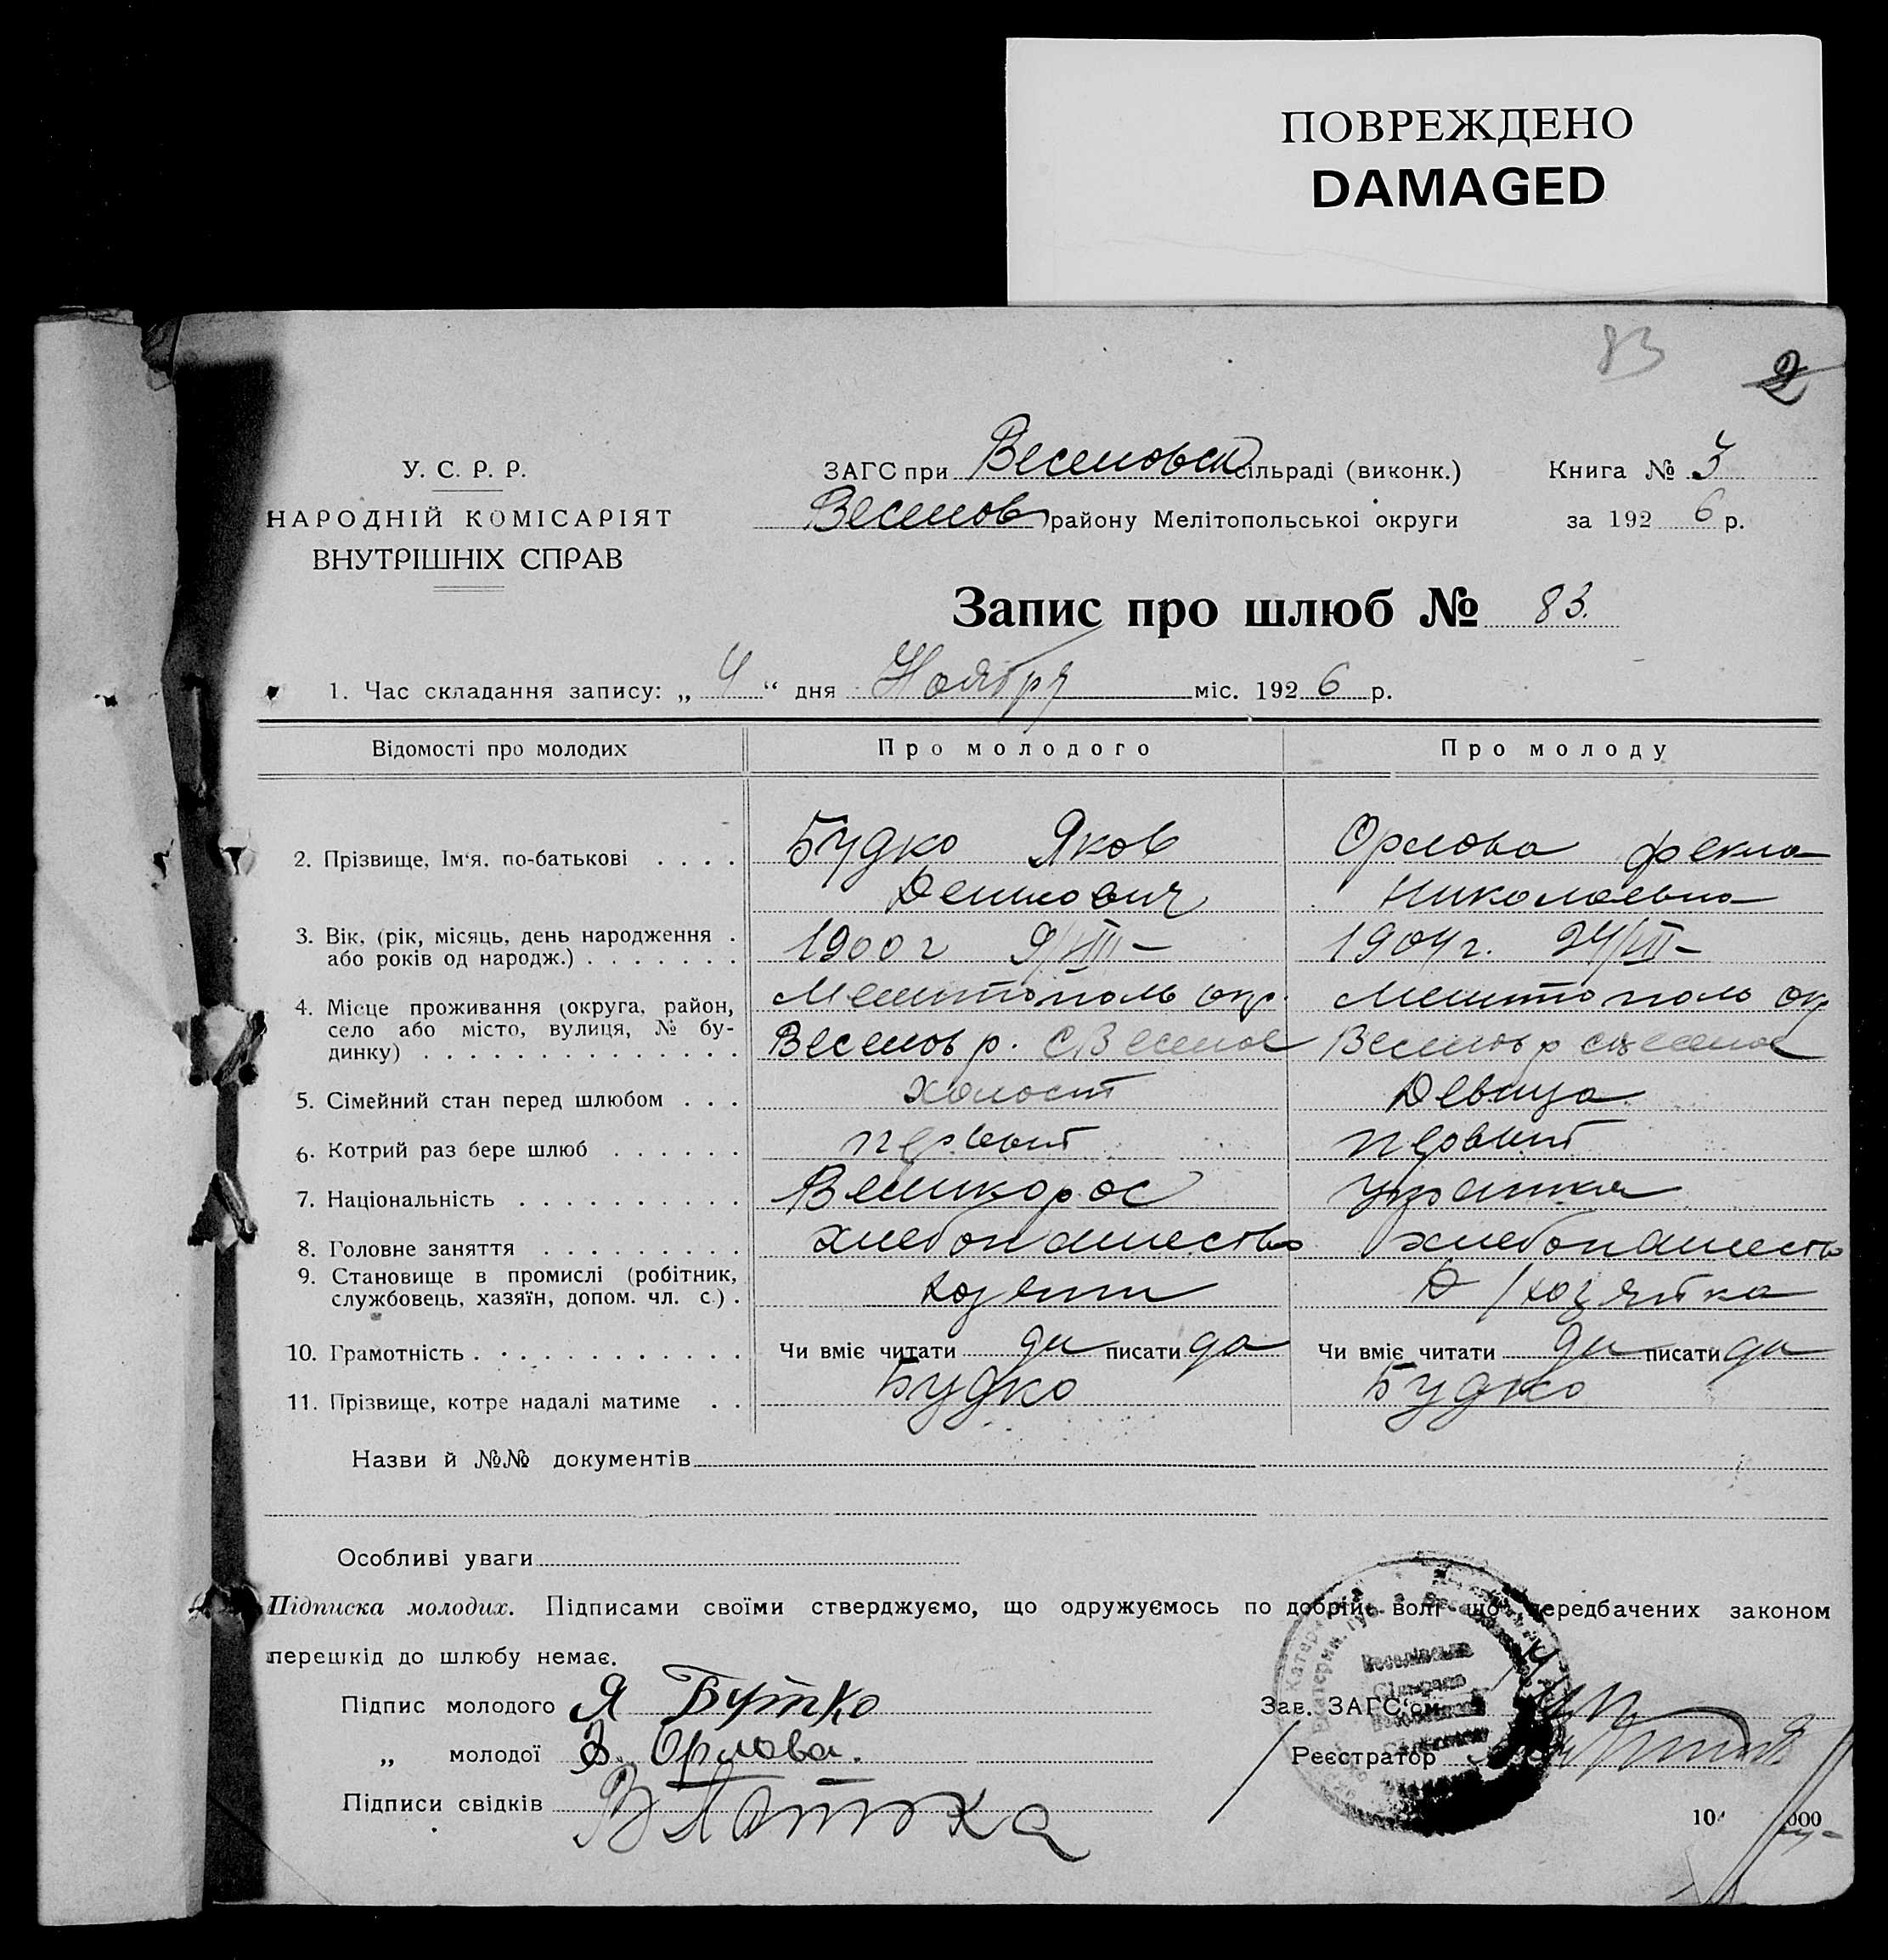 ПОВРЕЖДЕНО
DAMAGED
83
2
У. С. Р. Р.
НАРОДНІЙ КОМІСАРІЯТ
ВНУТРІШНІХ СПРАВ
ЗАГС при Веселовск сільраді (виконк.) Книга № 3
Веселов району Мелітопольскоі округи за 192 6 р.
Запис про шлюб № 83.
1. Час складання запису: „ 4 “ дня Ноября міс. 192 6 р.
Відомості про молодих Про молодого Про молоду
Будко Яков Орлова Фекла
2. Прізвище, Ім‘я, по-батькові . . . .
Николаевна
3. Вік, (рік, місяць, день народження . 1900 г 9/VIII – 1904 г. 24/VII –
або років од народж.) . . . . . . .
4. Місце проживання (округа, район, Мелитополь окр. Мелитополь окр
село або місто, вулиця, № бу- Веселов р. с Веселое Веселов р с Веселое
динку) . . . . . . . . . . . . . . .
5. Сімейний стан перед шлюбом . . . Холост Девица
6. Котрий раз бере шлюб . . . . . . первый первый
7. Національність . . . . . . . . . . Великорос Украинка
8. Головне заняття . . . . . . . . . хлебопашество хлебопашество
9. Становище в промислі (робітник,
службовець, хазяїн, допом. чл. с.) . хозяин Д/хозяйка
10. Грамотність . . . . . . . . . . . . Чи вміє читати да писати да Чи вміє читати да писати да
11. Прізвище, котре надалі матиме . . Будко Будко
Назви й №№ документів
Особливі уваги
Підписка молодих. Підписами своїми стверджуємо, що одружуємось по добрій волі що передбачених законом
перешкід до шлюбу немає.
Підпис молодого Я Бутко Зав. ЗАГС‘ом
„ молодої Орлова. Реєстратор
Підписи свідків